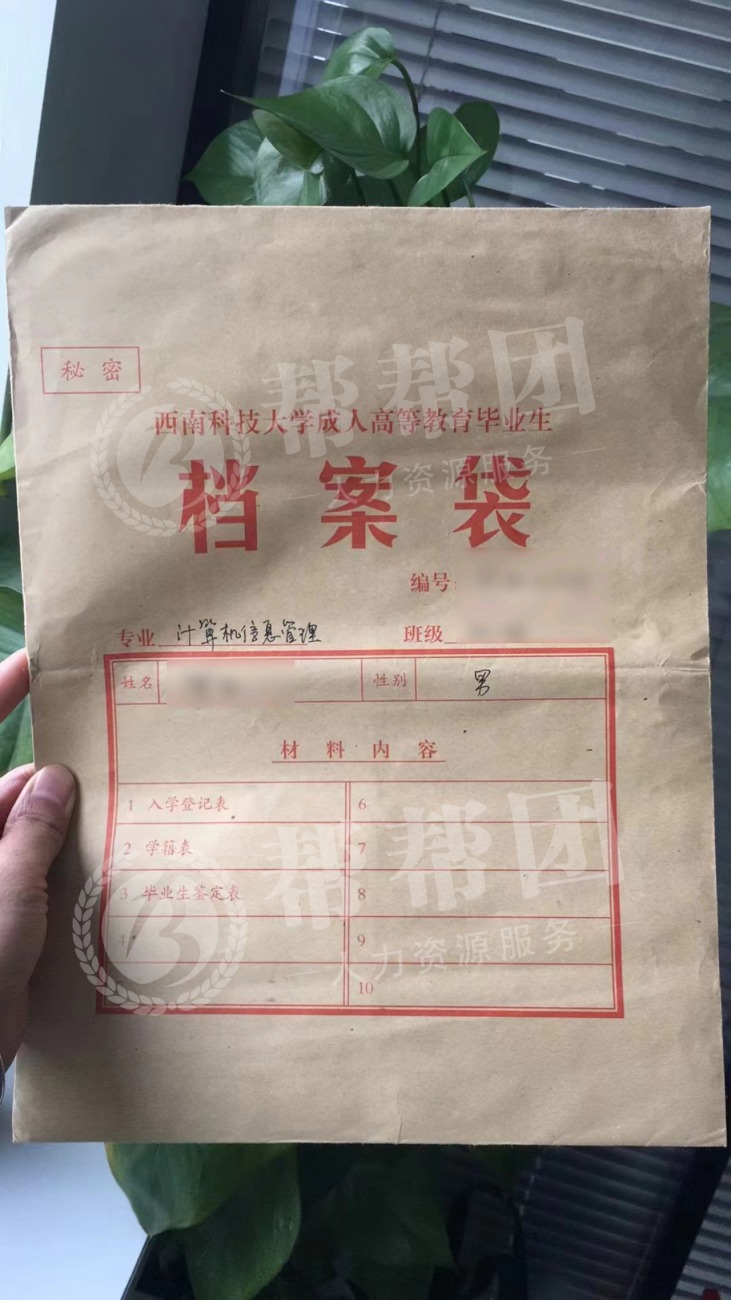 秘密
西南科技大学成人高等教育毕业生
档案袋
编号:
专业 计算机信息管理 班级
姓名 性别 男
材料内容
1 入学登记表 6
2 学籍表 7
3 毕业生鉴定表 8
4 9
10
帮帮团
人力资源服务
帮帮团
人力资源服务